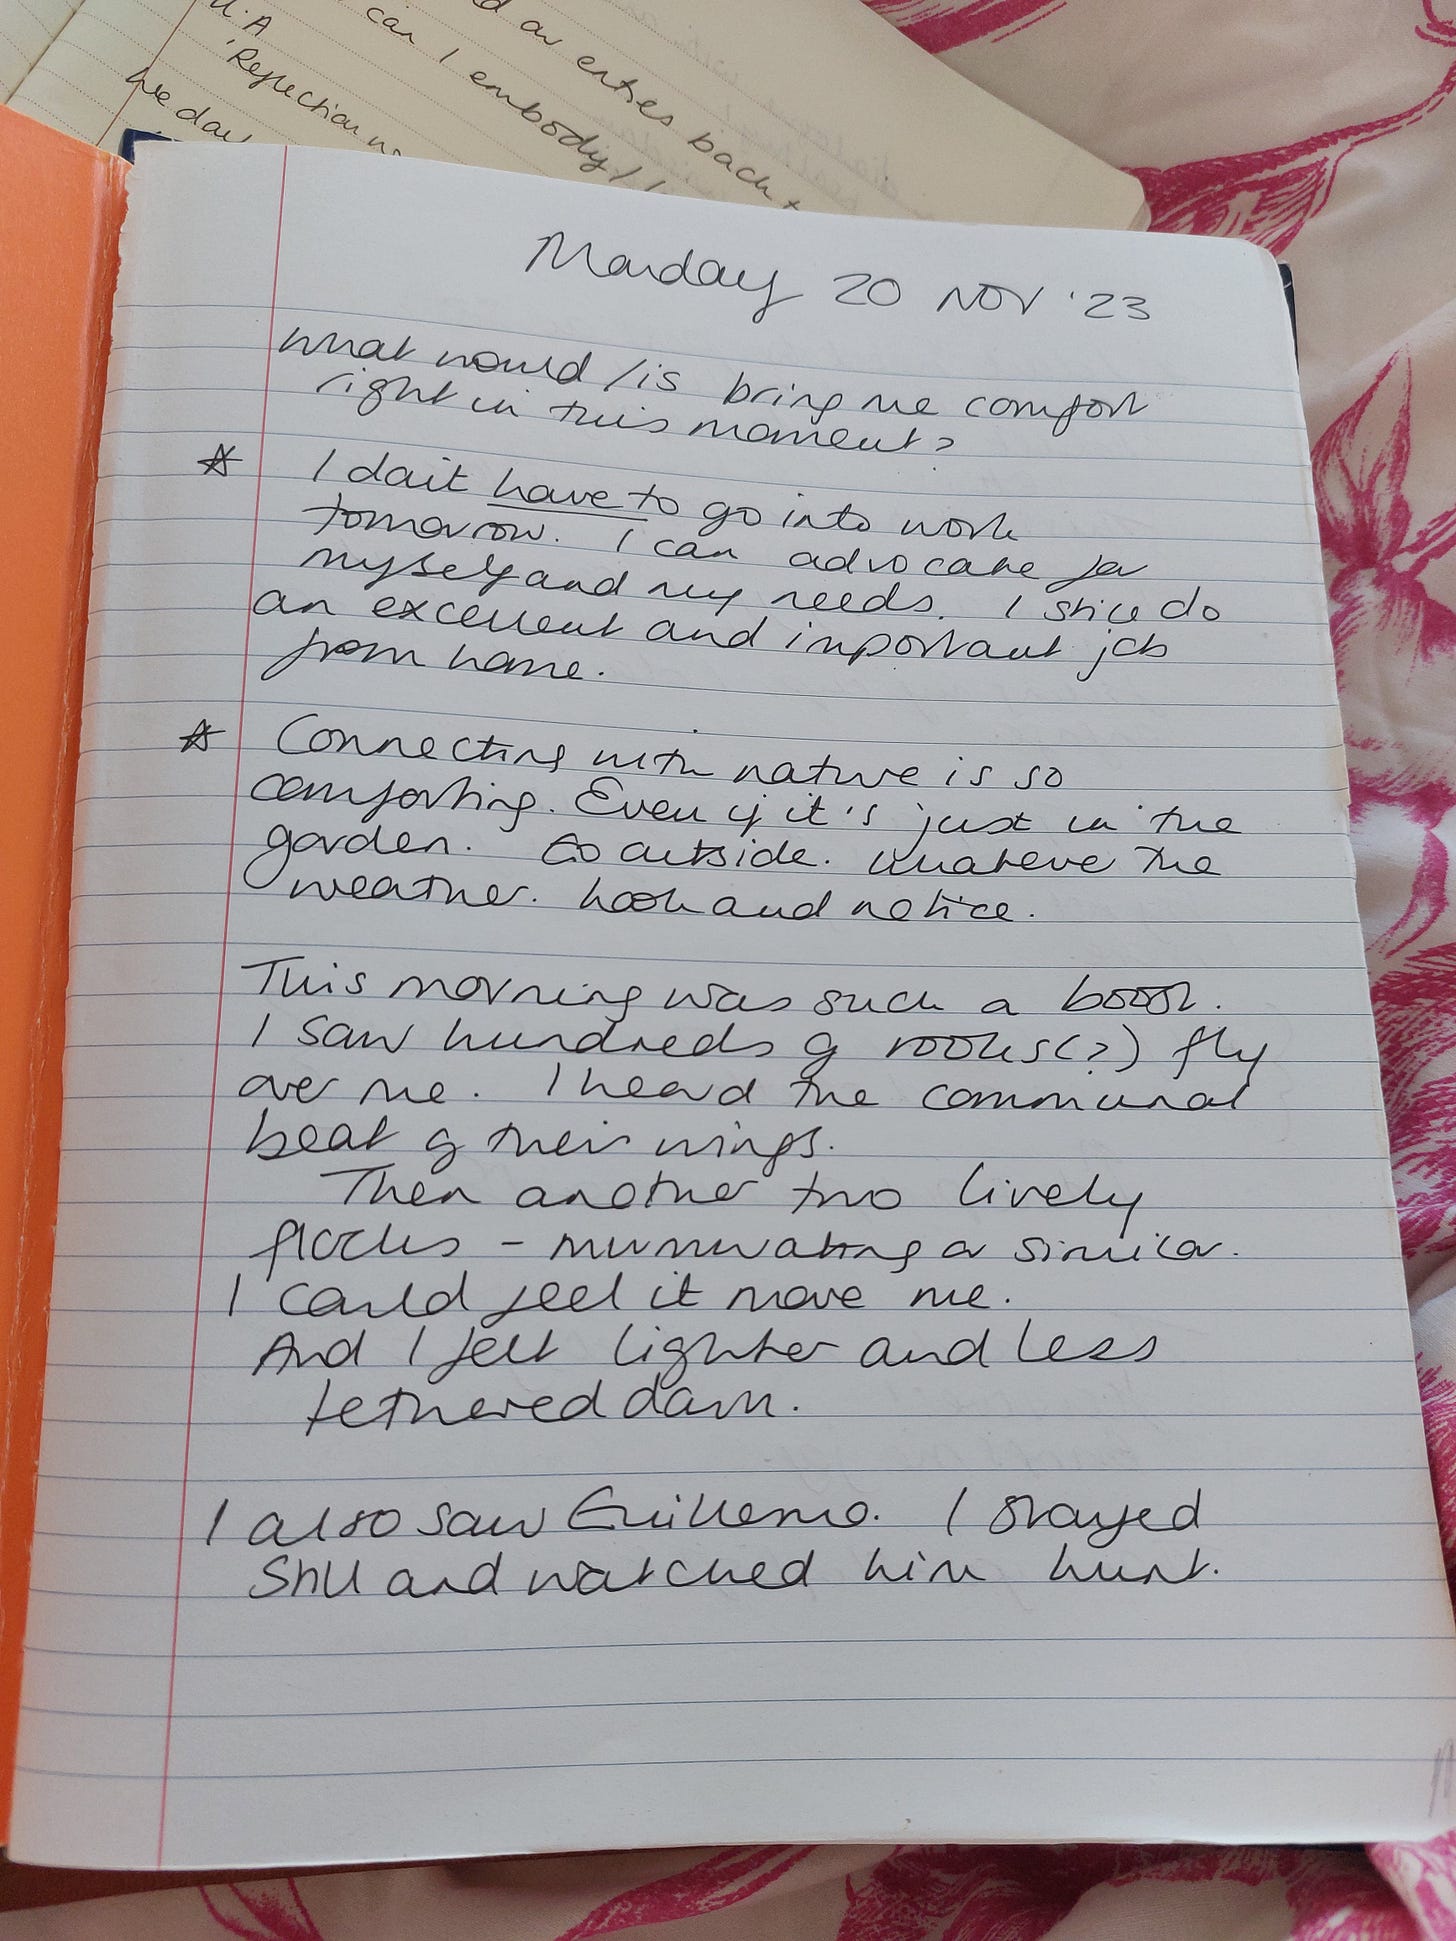 d an entries back t
can I embody / l
U.A
'Reflection
We dai
Monday 20 NOV '23
What would / is bring me comfort
right in this moment?
☆ I don't have to go into work
tomorrow. I can advocate for
myself and my needs. I still do
an excellent and important job
from home.
☆ Connecting with nature is so
comforting. Even if it's just in the
garden. Go outside. Whatever the
weather. Look and notice.
This morning was such a boost.
I saw hundreds of rooks(?) fly
over me. I heard the communal
beat of their wings.
Then another two lively
flocks - murmurating or similar.
I could feel it move me.
And I felt lighter and less
tethered down.
I also saw Guillermo. I stayed
still and watched him hunt.